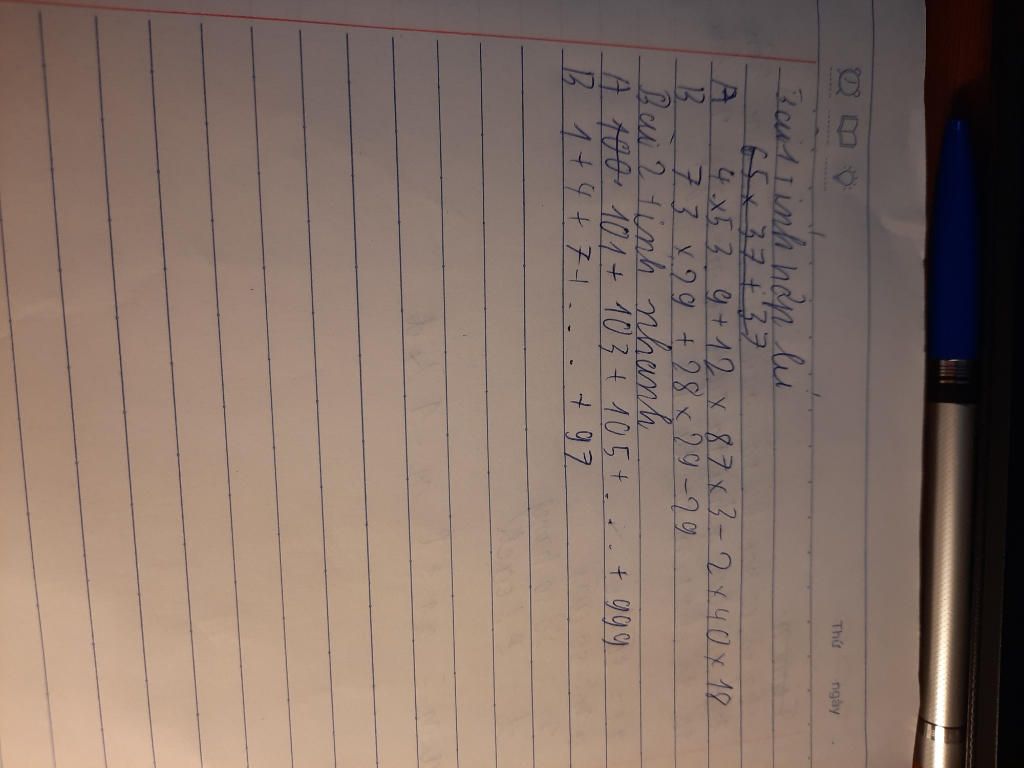 Thứ ngày
Bài 1 tính hợp lí
65 x 37 + 37
A 4 x 53 . 9 + 12 x 87 x 3 - 2 x 40 x 18
B 73 x 29 + 28 x 29 - 29
Bài 2 tính nhanh
A 100. 101 + 103 + 105 + ... + 999
B 1 + 4 + 7 + ... + 97